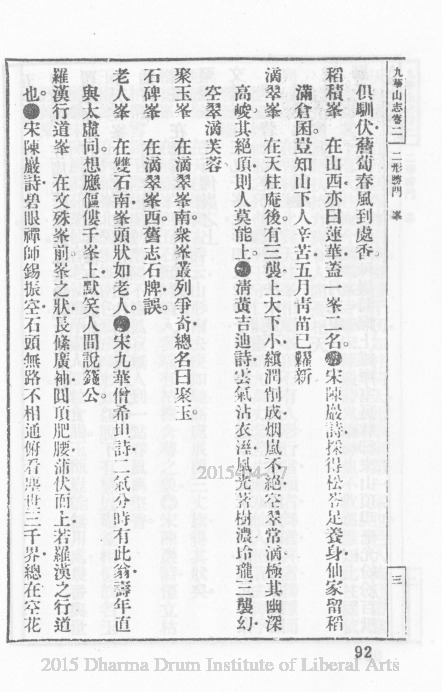 九華山志卷二　二形勝門　峯
俱馴伏薝蔔春風到處香
稻積峯　在山西亦曰蓮華蓋一峯二名。宋陳巖詩採得松苓足養身仙家留稻
滿倉囷豈知山下人辛苦五月青苗已糶新
滴翠峯　在天柱庵後有三襲上大下小縝潤削成烟嵐不絕空翠常滴極其幽深
高峻其絕頂則人莫能上。清黃吉迪詩雲氣沾衣溼風光著樹濃玲瓏三襲幻
空翠滴芙蓉
聚玉峯　在滴翠峯南眾峯叢列爭奇總名曰聚玉。
石碑峯　在滴翠峯西。舊志石牌誤。
老人峯　在雙石南峯頭狀如老人。宋九華僧希坦詩二氣分時有此翁壽年直
與太虛同想應傴僂千峯上默笑人間說錢公。
羅漢行道峯　在文殊峯前峯之狀長條廣袖圓頂肥腰蒲伏而上若羅漢之行道
也。宋陳巖詩碧眼禪師錫振空石頭無路不相通俯看塵世三千界總在空花
三
92
2015-04-17
2015 Dharma Drum Institute of Liberal Arts